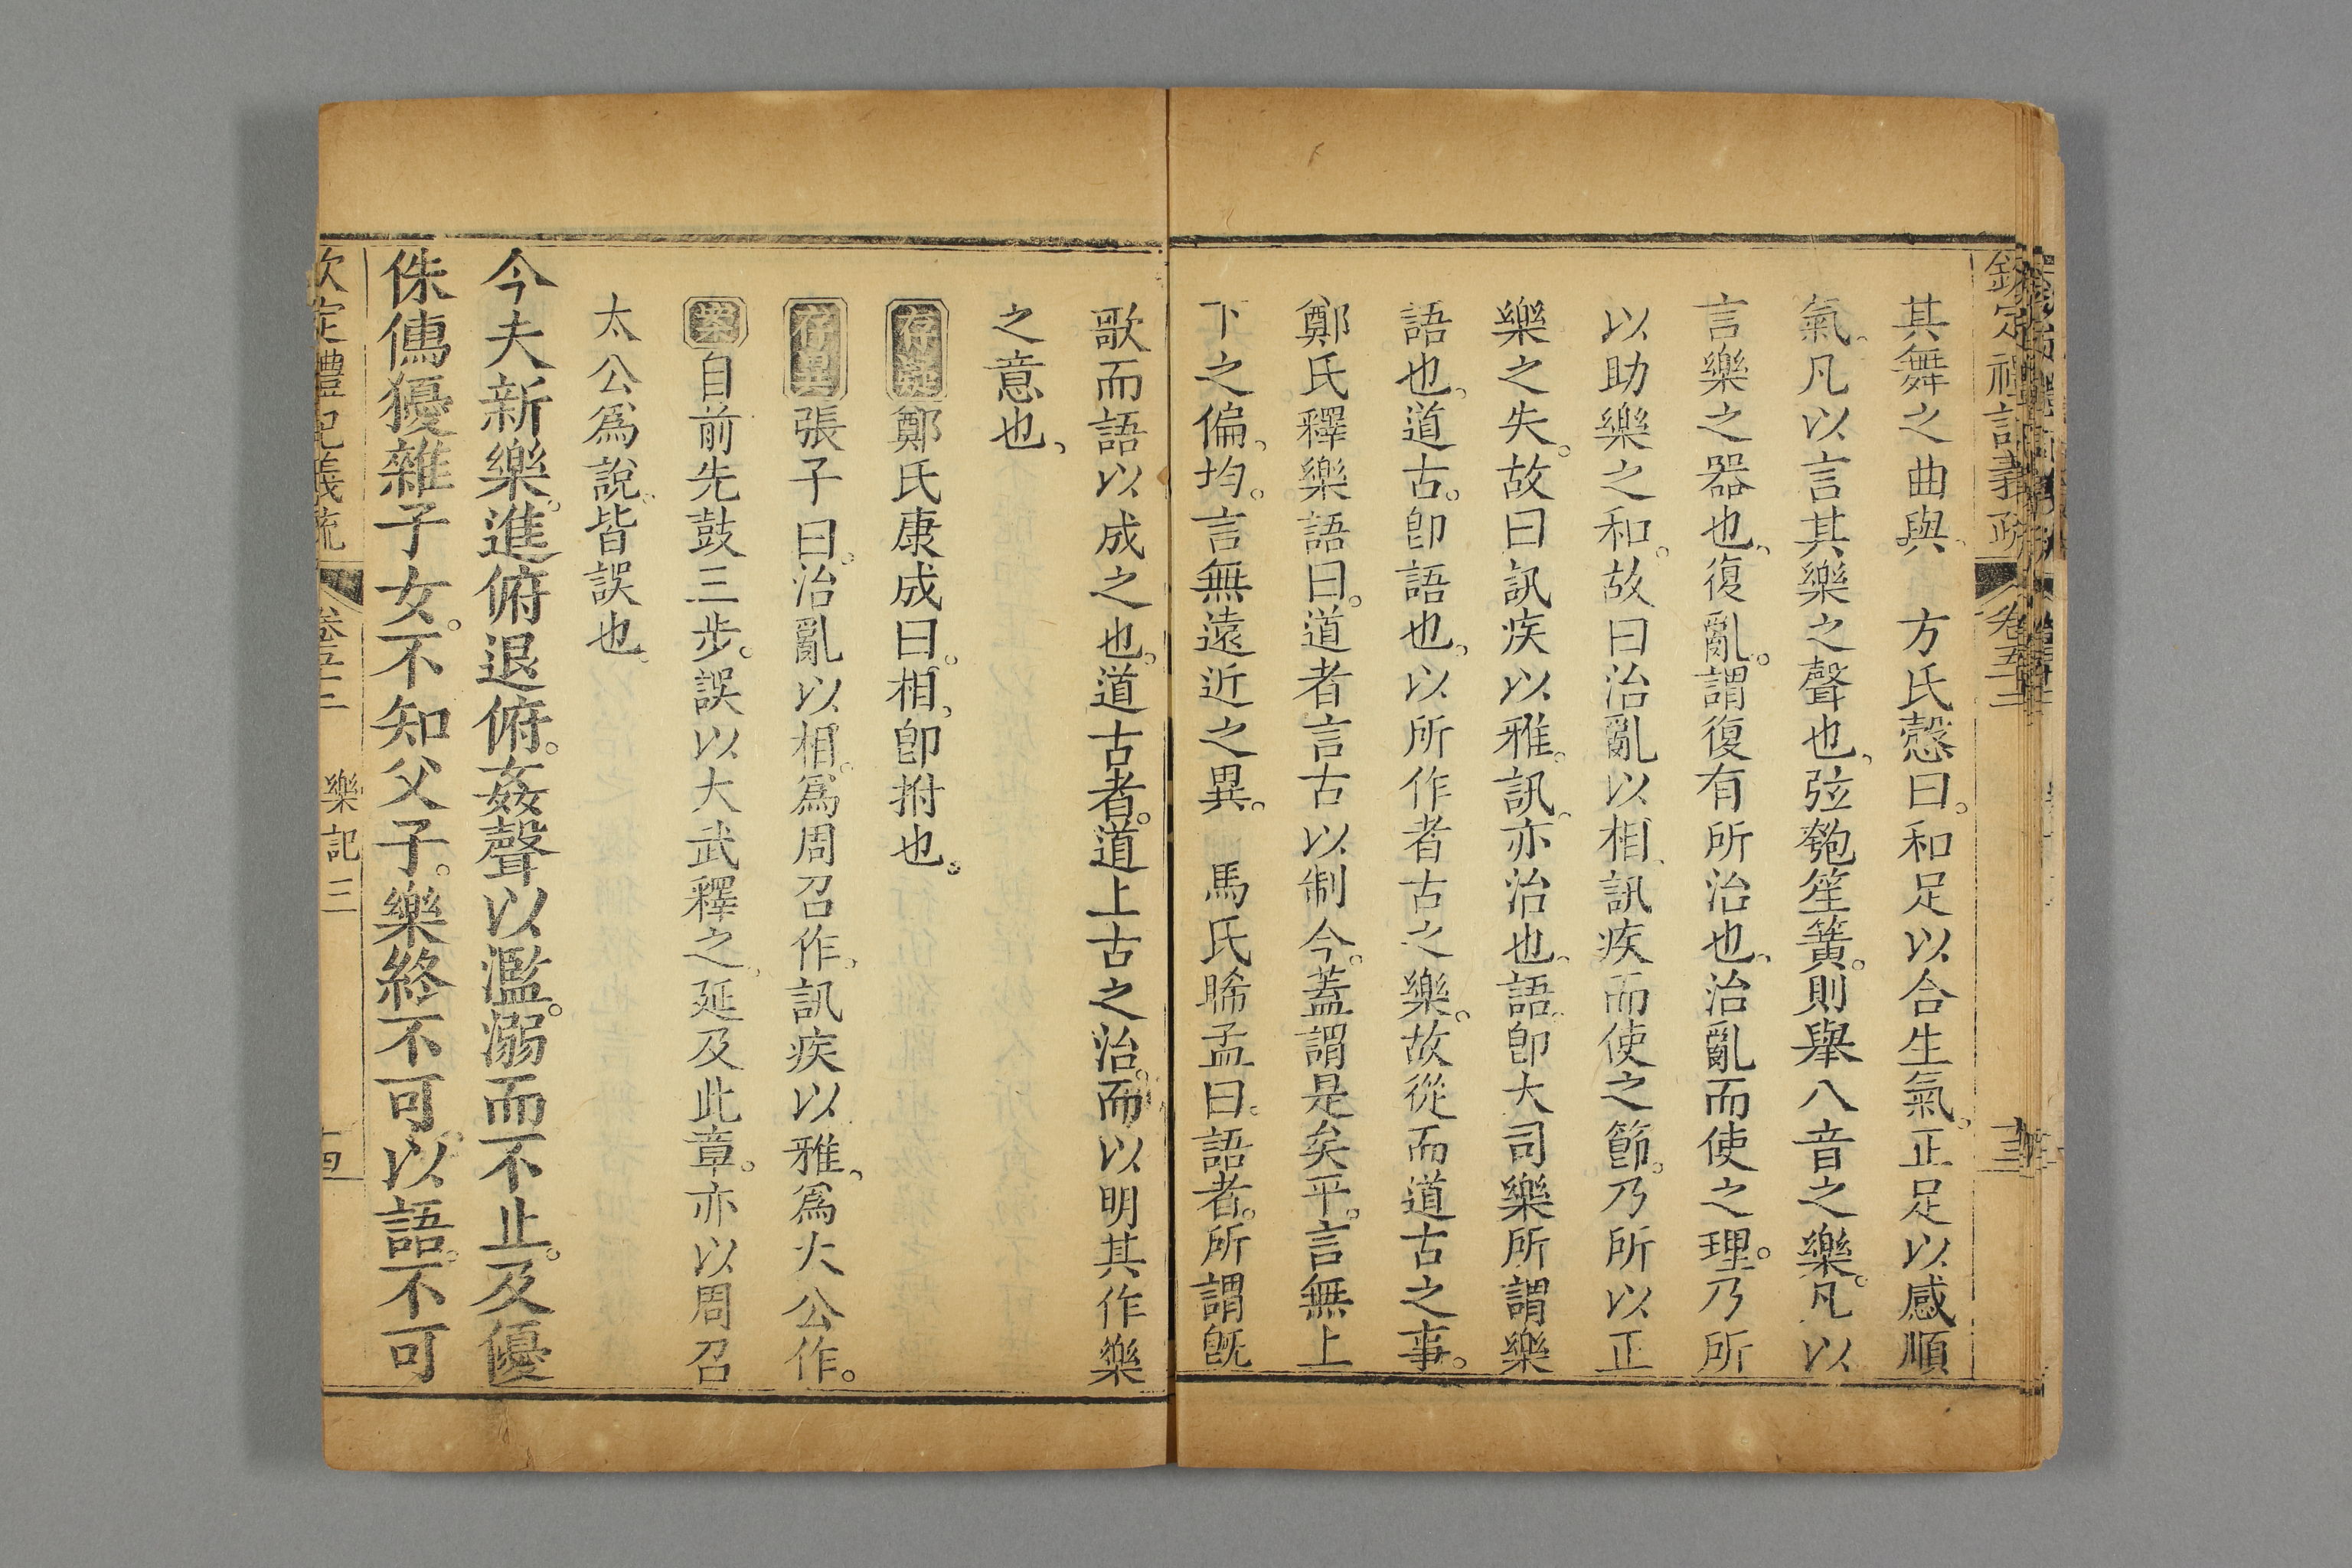 欽定禮記義疏 卷五十二
其舞之曲與 方氏慤曰。和足以合生氣。正足以感順
氣。凡以言其樂之聲也、弦匏笙簧。則舉八音之樂。凡以
言樂之器也、復亂。謂復有所治也、治亂而使之理。乃所
以助樂之和。故曰治亂以相、訊疾而使之節。乃所以正
樂之失。故曰訊疾以雅。訊、亦治也、語、卽大司樂所謂樂
語也、道古。卽語也、以所作者古之樂。故從而道古之事。
鄭氏釋樂語曰。道者言古以制今。蓋謂是矣平。言無上
下之偏、均。言無遠近之異。 馬氏晞孟曰。語者。所謂旣
歌而語以成之也。道古者。道上古之治。而以明其作樂
之意也、
存疑鄭氏康成曰。相、卽拊也。
存異張子曰。治亂以相。爲周召作、訊疾以雅、爲大公作。
案自前先鼓三步。誤以大武釋之、延及此章。亦以周召
太公爲說。皆誤也。
今夫新樂。進俯退俯。姦聲以濫。溺而不止。及優
侏儒獶雜子女。不知父子。樂終不可以語。不可
欽定禮記義疏 卷五十二 樂記 三 十四